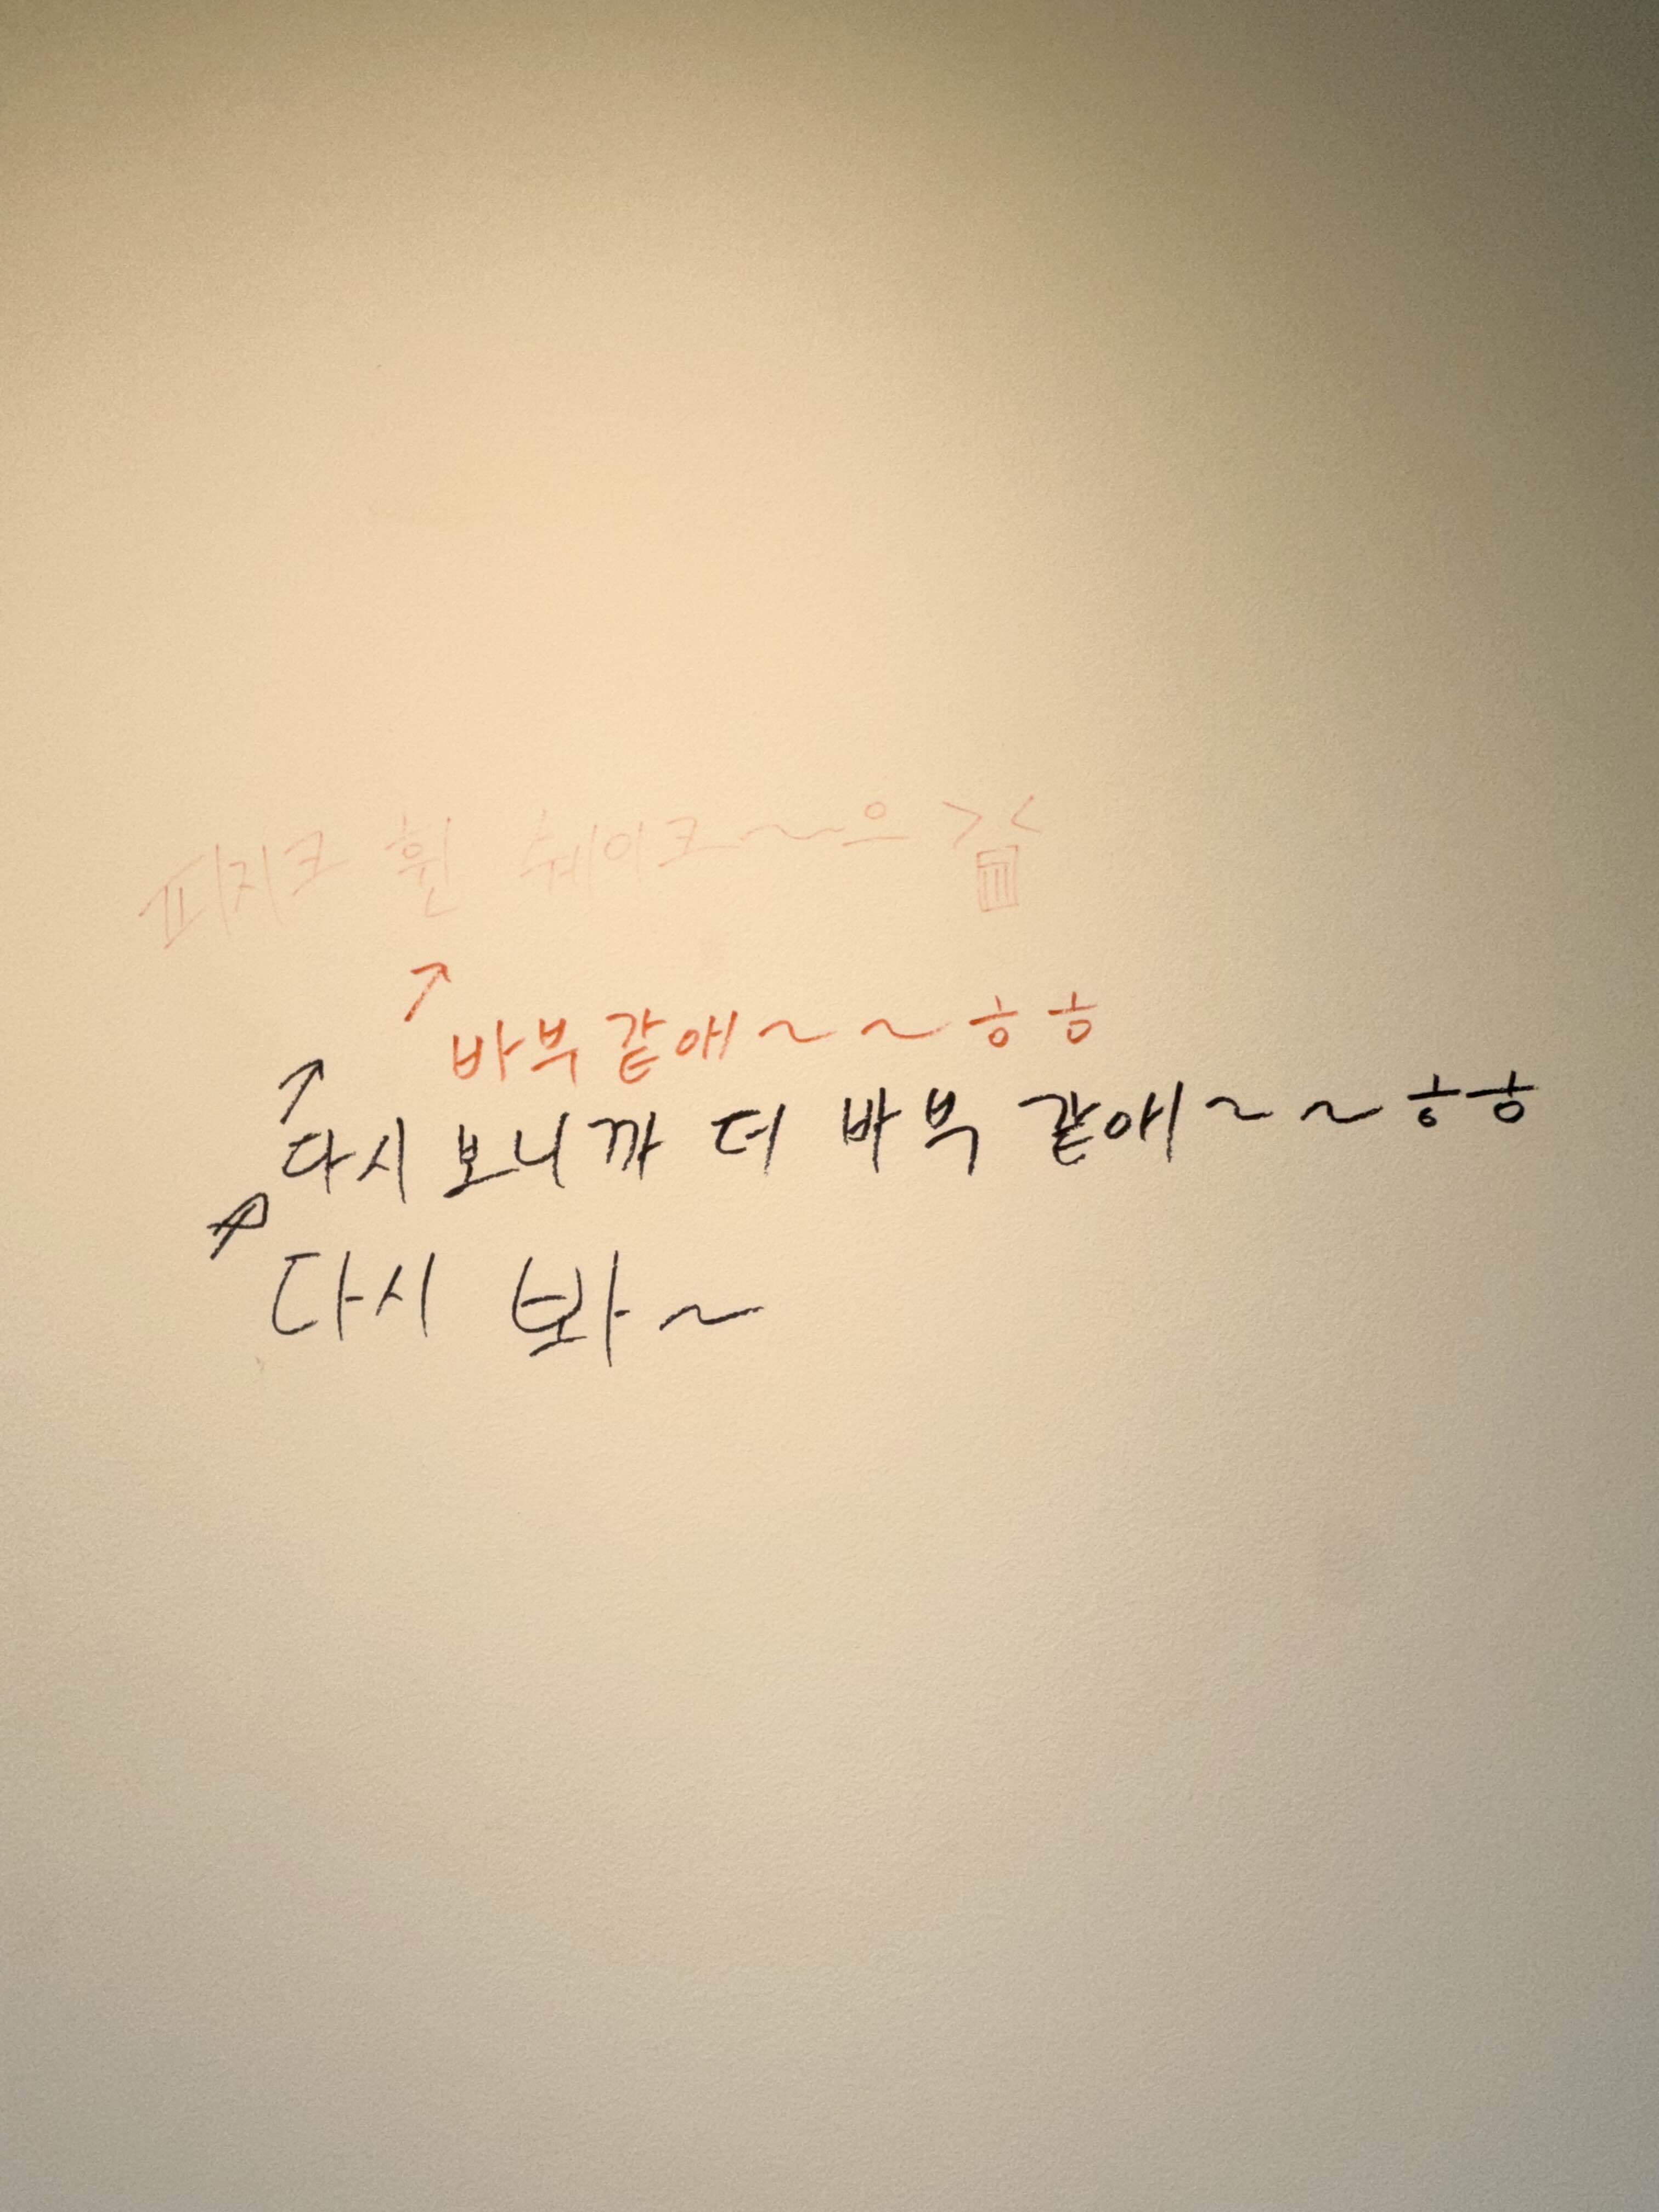 피지크 휜 쉐이크~~으 ><
↗ 바부같애~~ㅎㅎ
↗ 다시 보니까 더 바부 같애~~ㅎㅎ
↗ 다시 봐~